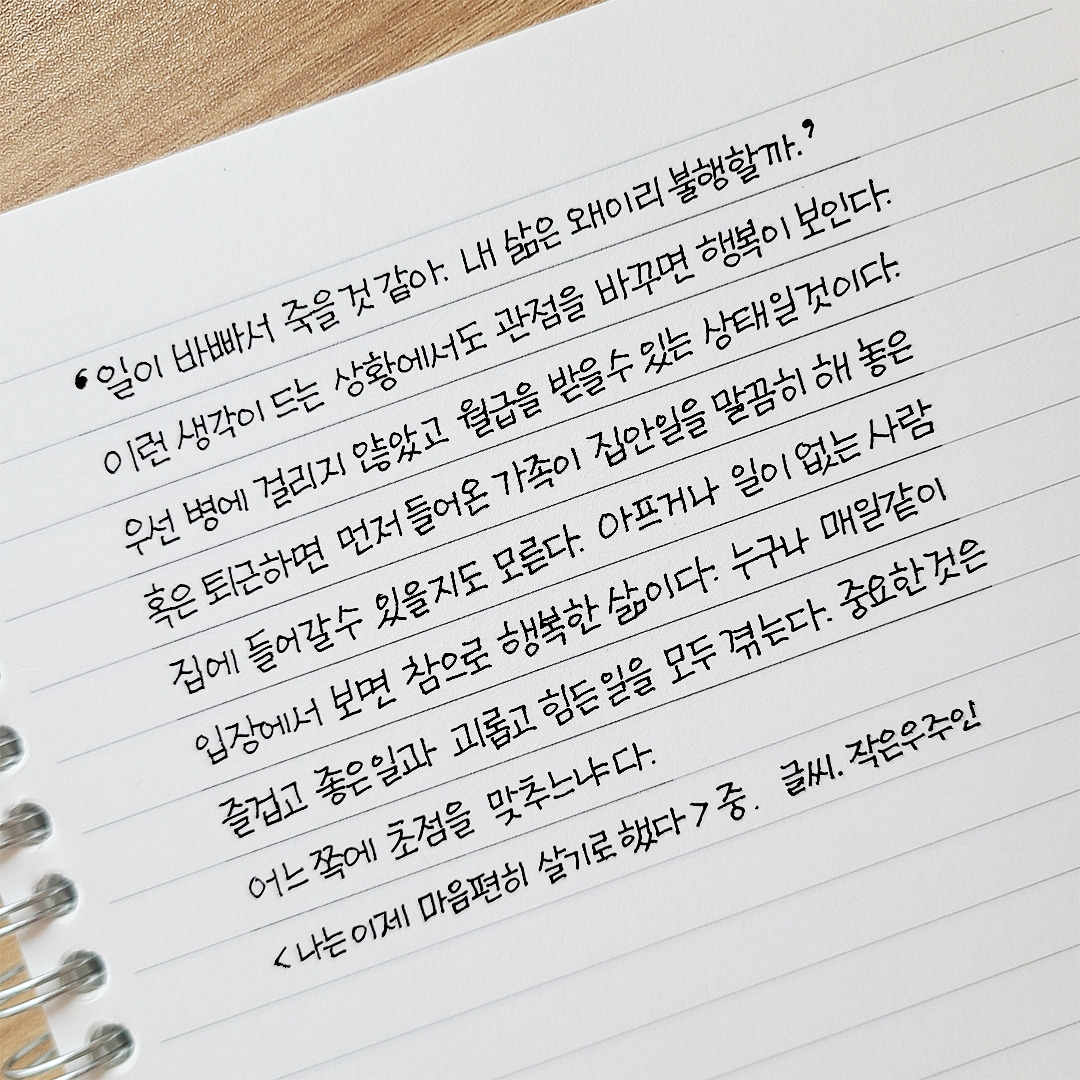 ‘일이 바빠서 죽을것 같아. 내 삶은 왜이리 불행할까.’
이런 생각이 드는 상황에서도 관점을 바꾸면 행복이 보인다.
우선 병에 걸리지 않았고 월급을 받을수 있는 상태일것이다.
혹은 퇴근하면 먼저 들어온 가족이 집안일을 말끔히 해 놓은
집에 들어갈수 있을지도 모른다. 아프거나 일이 없는 사람
입장에서 보면 참으로 행복한 삶이다. 누구나 매일같이
즐겁고 좋은일과 괴롭고 힘든일을 모두 겪는다. 중요한것은
어느쪽에 초점을 맞추느냐다.
<나는이제 마음편히 살기로했다> 중. 글씨. 작은우주인